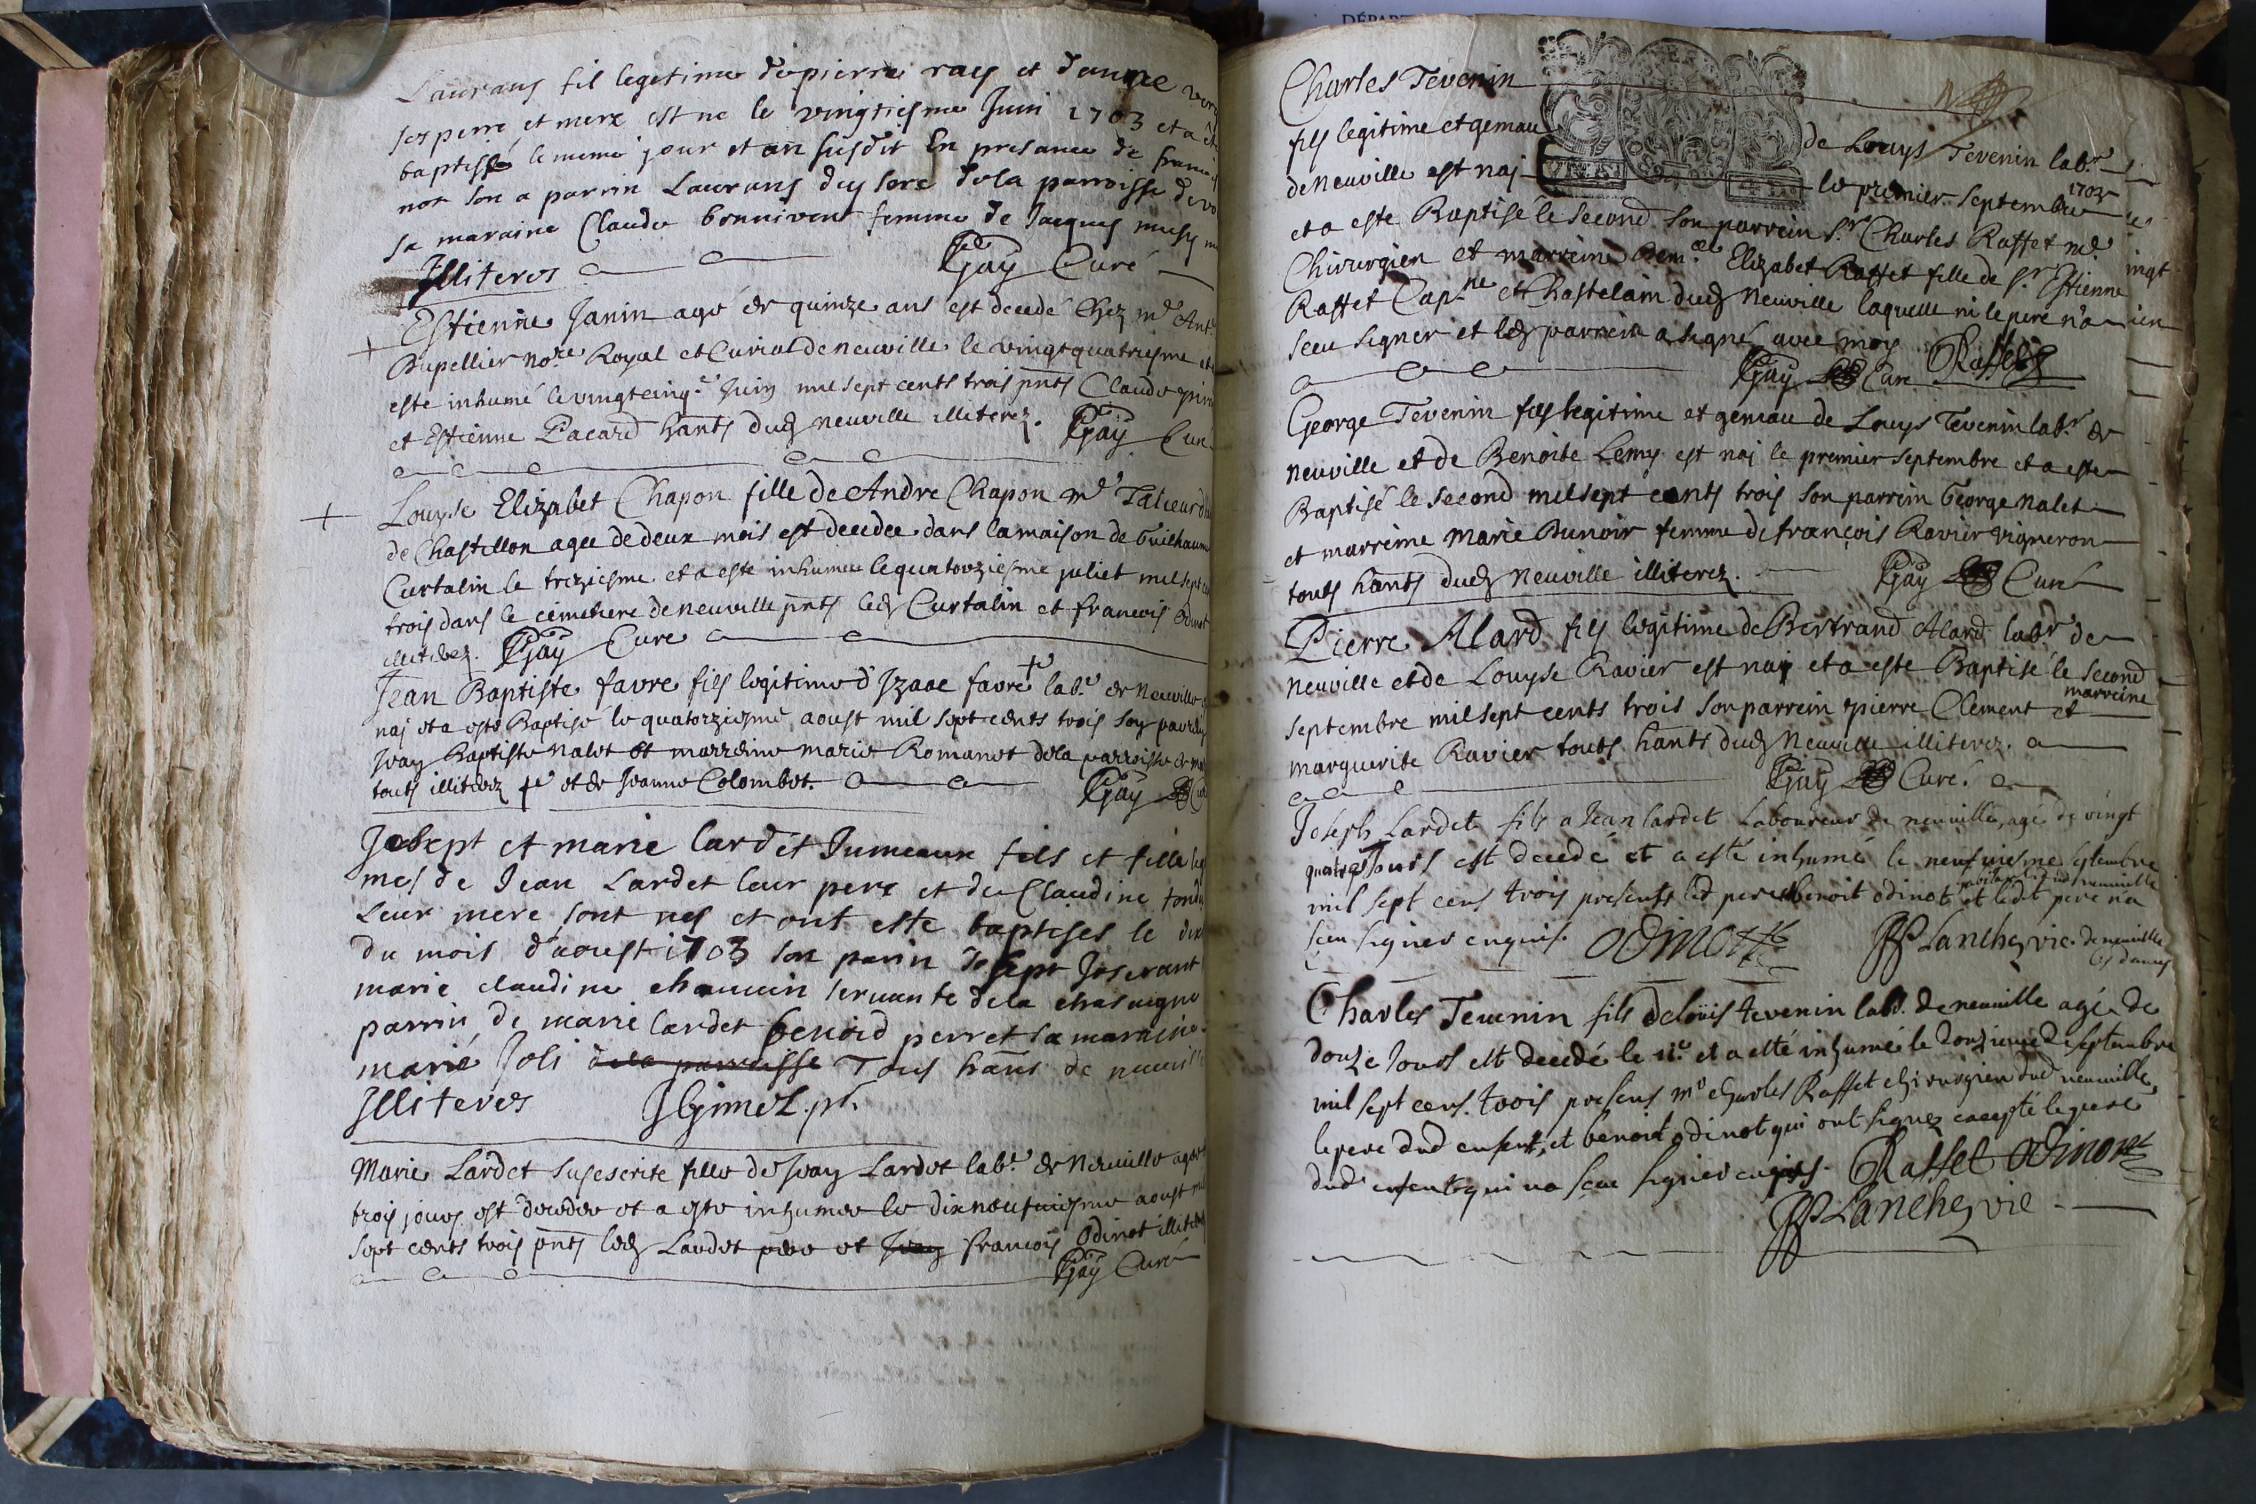 Laurans fil legetime de pierre ray et danne
ses perre et mere est ne le vingtiesme Juin 1703 et a
baptisé le meme jour et an susdit En presance de
not son a parrin Laurans deysere de la parroisse de
sa maraine Claude bonnivent femme de Jacques
Illiteres Gay Curé
Estienne Janin agé de quinze ans est decedé Chez me Ant
Dupellier nore Royal et Curial de neuville le vingtquatriesme et
este inhumé le vingtcinqe Juin mil sept cents trois pnts Claude
et Estienne Pacard hants dud neuville illiterez. Gay Cure
Louyse Elizabet Chapon fille de Andre Chapon me Talieur
de Chastillon agee de deux mois est decedee dans la maison de Guilhaume
Curtalin le treziesme et a este inhumee le quatorziesme juliet mil sept
trois dans le cemetiere de neuville pnts led Curtalin et francois Odinot
illiterez. Gay Cure
Jean Baptiste favre fils legitime d'Izaac favre labr de Neuville
naj et a este Baptisé le quatorziesme aoust mil sept cents trois son parrein
Jean Baptiste nalet et marreine marie Romanet de la parroisse de
touts illiterez et de Jeanne Colombet. Gay Cure
Josept et marie lardet Jumeaux fils et fille
mes de Jean Lardet leur pere et de Claudine
Leur mere sont nes et ont este baptises le
du mois d'aoust 1703 son parin Josept Joserant
marie claudine chanuin servante de la chasaigne
parrin de marie lardet benoid perret sa maraine
marie Joli de la parroisse Tous hans de neuville
Illiteres JGimel. pt.
Marie Lardet susescrite fille de Jean Lardet labr de Neuville agee
trois jours est decedee et a este inhumee le dixneufuiesme aoust mil
sept cents trois pnts led Lardet pere et Jean francois Odinot illiterez
Gay Curé
DÉPART
Charles Tevenin
fils legitime et gemau de Louys Tevenin labr
de neuville est naj le premier septembre 1703
et a este Baptisé le second son parrein Sr Charles Raffet me
Chirurgien et marreine Demlle Elizabet Raffet fille de Sr Estienne
Raffet Capne et Chastelain dud neuville laquelle ni le pere n'a
sceu signer et led parrein a signé avec moy
Gay Cure Raffet
George Tevenin fils legitime et gemau de Louys Tevenin labr de
neuville et de Benoite Lemy est naj le premier septembre et a este
Baptisé le second mil sept cents trois son parrein George nalet
et marreine Marie Bunoir femme de françois Ravier vigneron
touts hants dud neuville illiterez. Gay Curé
Pierre Alard fils legitime de Bertrand Alard labr de
neuville et de Louyse Ravier est naj et a este Baptisé le second
septembre mil sept cents trois son parrein pierre Clement et marreine
marguerite Ravier touts hants dud Neuville illiterez.
Gay Curé.
Joseph Lardet fils a Jean lardet Laboureur de neuuille, agé de vingt
quatre Jours est decedé et a esté inhumé le neufuiesme septembre
mil sept cens trois presents led pere benoit odinot habitant dud neuuille et ledit pere n'a
sceu signer enquis. ODINOT Lanchezvie de neuuille
Charles Teuenin fils de loüis tevenin labr. de neuuille agé de
douze Jours est decedé le 11e et a esté inhumé le douzieme de septembre
mil sept cens trois presens me charles Raffet chirurgien dud neuuille,
le pere dud enfant, et benoit odinot qui ont signez excepté le pere
dud enfant qui na sceu signer enquis. Raffet ODINOT
Lanchezvie